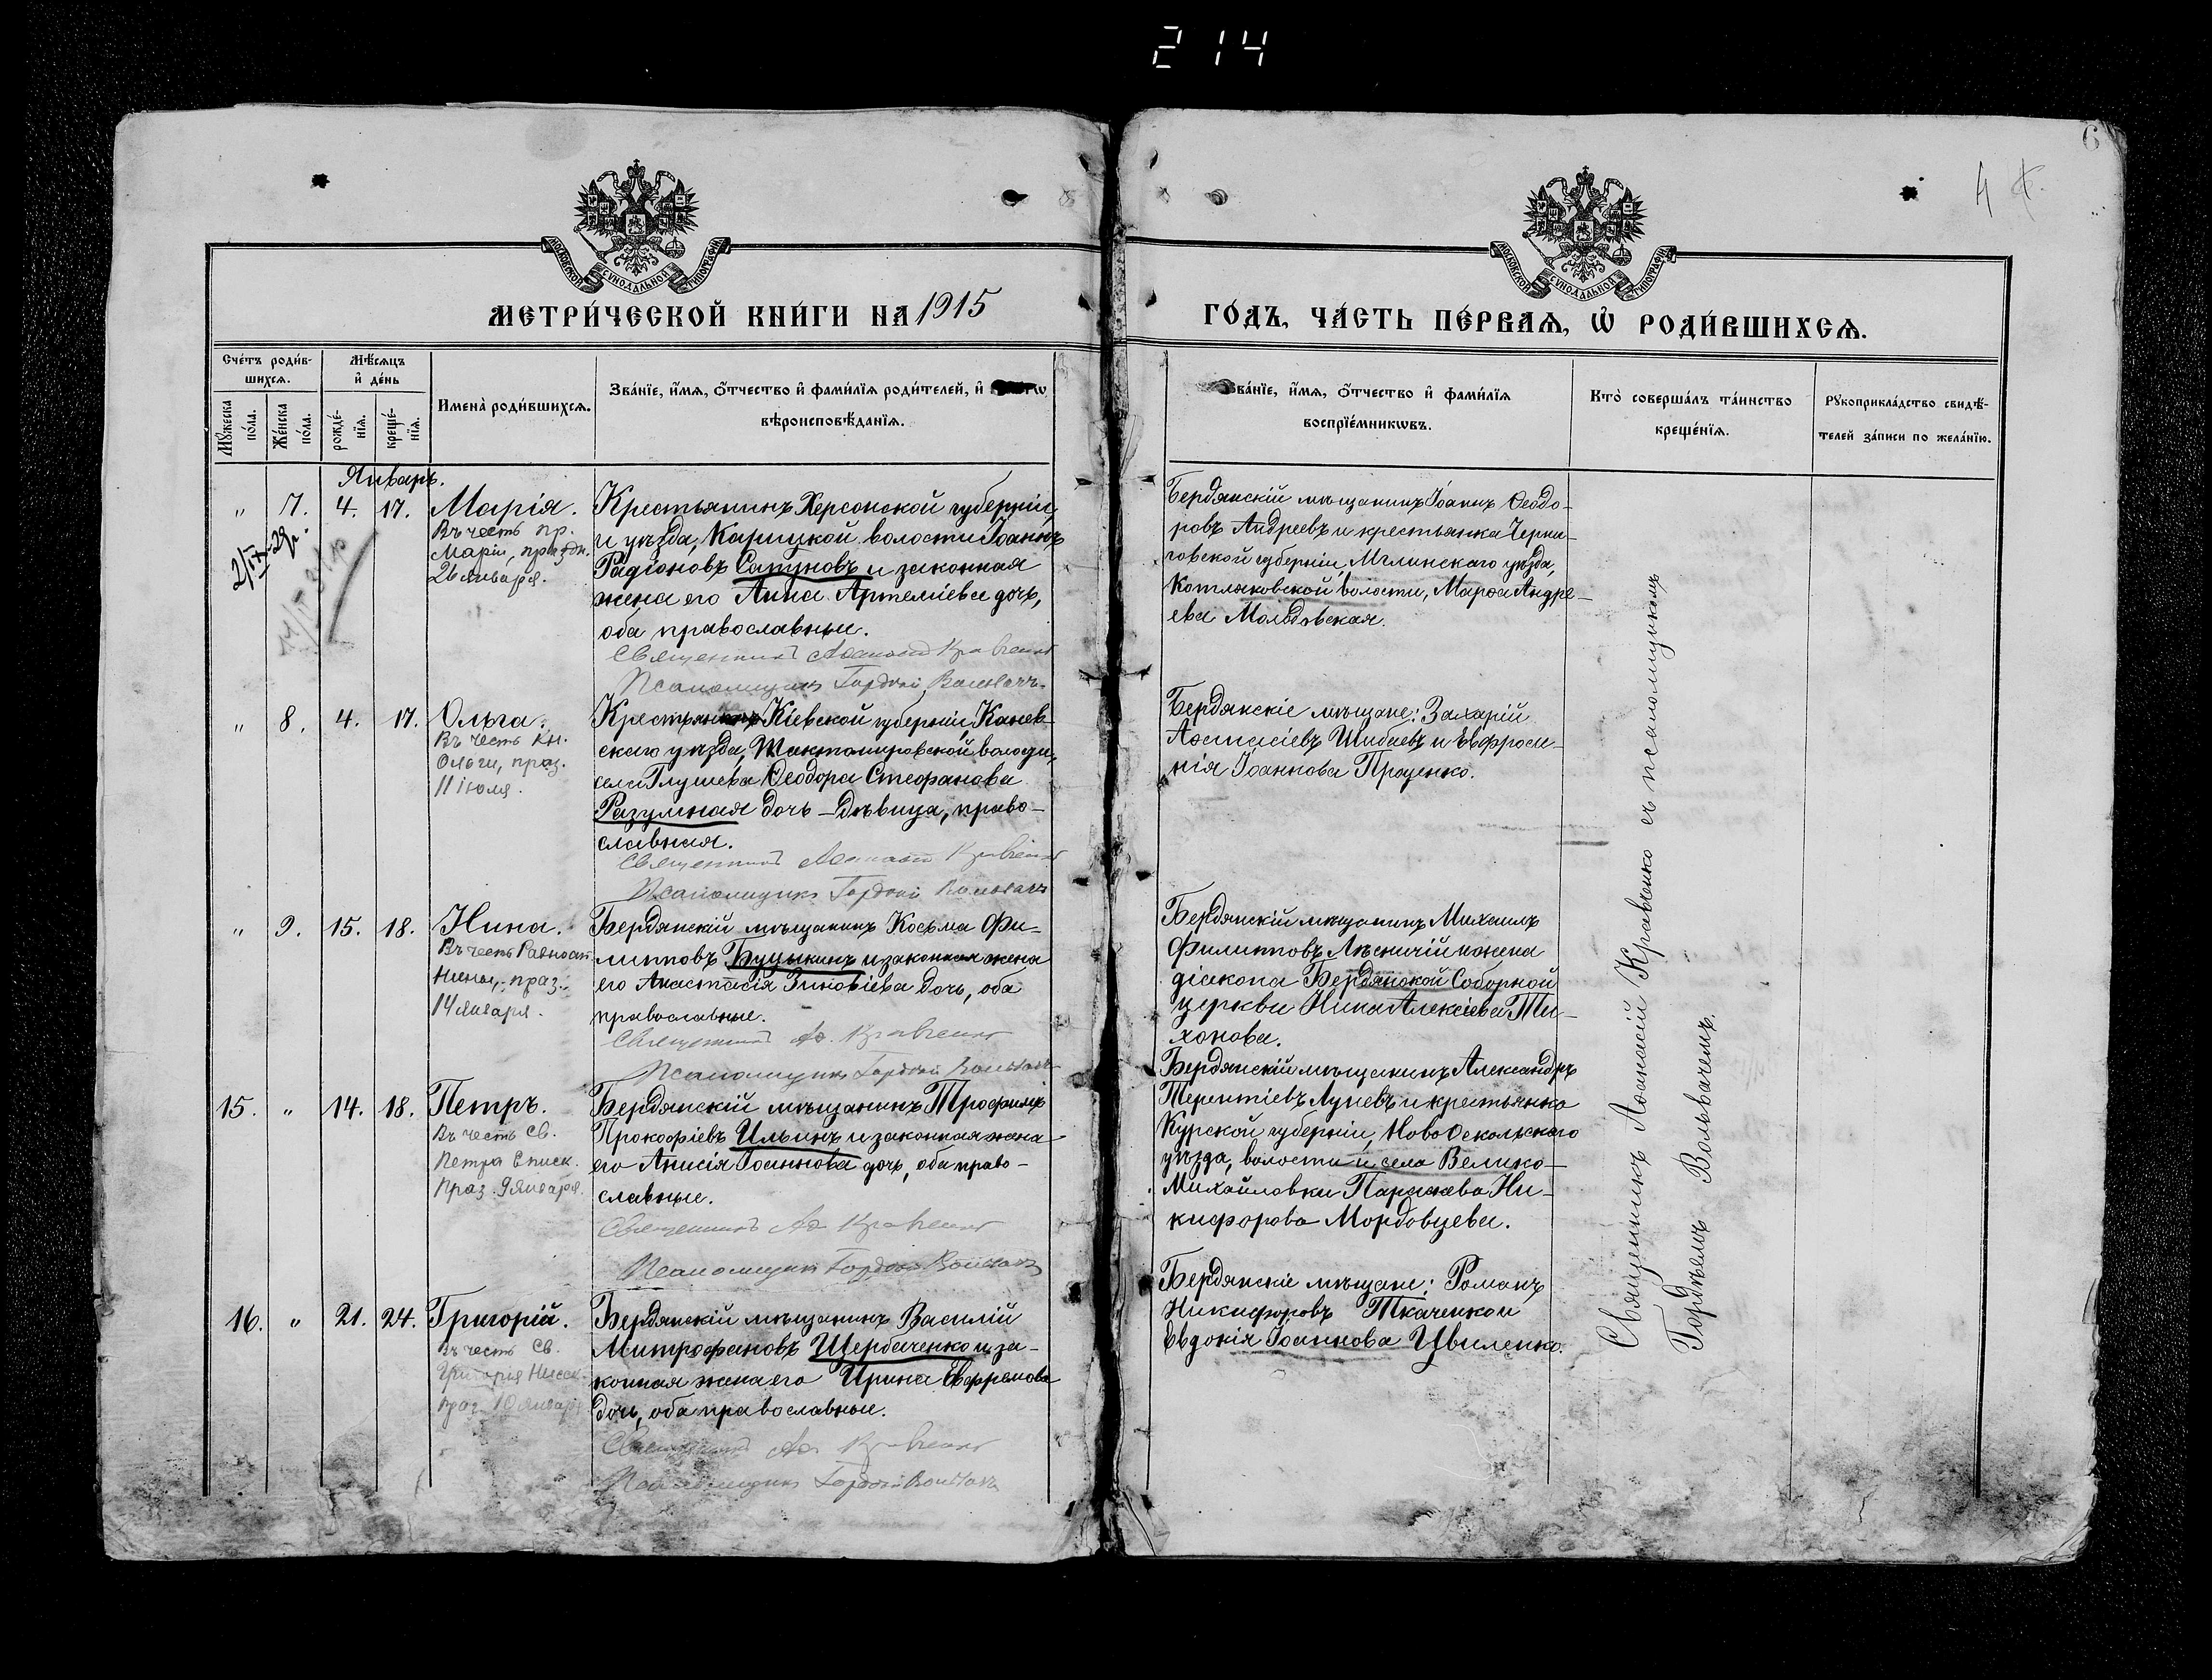 214
6
4
МОСКОВСКОЙ СѴНОДАЛЬНОЙ ТИПОГРАФІИ
МОСКОВСКОЙ СѴНОДАЛЬНОЙ ТИПОГРАФІИ
МЕТРИ́ЧЕСКОЙ КНИ́ГИ НА 1915
ГО́ДЪ, ЧА́СТЬ ПЕ́РВАѦ, Ѡ҆ РОДИ́ВШИХСѦ.
Сче́тъ роди́в-
шихсѧ.
Мѣ́сѧцъ
и҆ де́нь
Мꙋ́жеска
по́ла.
Же́нска
по́ла.
рожде́-
нїѧ.
креще́-
нїѧ.
Имена̀ роди́вшихсѧ.
Зва́нїе, и҆́мѧ, ѻ҆́тчество и҆ фами́лїѧ роди́телей, и҆
вѣроисповѣ́данїѧ.
Зва́нїе, и҆́мѧ, ѻ҆́тчество и҆ фами́лїѧ
воспрїе́мникѡвъ.
Кто̀ соверша́лъ та́инство
креще́нїѧ.
Рꙋкоприкла́дство свидѣ́-
телей за́писи по жела́нїю.
Январь.
„ 7. 4. 17. Марія.
Въ честь пр.
Маріи, праздн.
26 января.
Крестьянинъ Херсонской губерніи,
и уѣзда, Карицкой волости Іоаннъ
Радіоновъ Сапуновъ и законная
жена его Анна Артеміева дочь,
оба православныи.
Священникъ Аѳанасій Кравченко
Псаломщикъ Гордѣй Вольвачъ
Бердянскій мѣщанинъ Іоаннъ Ѳеодо-
ровъ Андреевъ и крестьянка Черни-
говской губерніи, Мглинскаго уѣзда,
Котляковской волости, Марѳа Андре-
ева Мольдовская.
„ 8. 4. 17. Ольга.
Въ честь Кн.
Ольги, праз.
11 іюля.
Кіевской губерніи, Канев-
скаго уѣзда, Шактомировской волости,
села Глушева Ѳеодора Стефанова
Разумная дочь - дѣвица, право-
славная.
Священникъ Аѳанасій Кравченко
Псаломщикъ Гордѣй Вольвачъ
Бердянскіе мѣщане: Захарій
Аѳанасіевъ Шибаевъ и Евфроси-
нія Іоаннова Проценко.
„ 9. 15. 18. Нина.
Въ честь Равноап.
Нины, праз.
14 января.
Бердянскій мѣщанинъ Косьма Фи-
липповъ Буцыкинъ и законная жена
его Анастасія Зиновіева дочь, оба
православные.
Священникъ Аѳ. Кравченко
Псаломщикъ Гордѣй Вольвачъ
Бердянскій мѣщанинъ Михаилъ
Филипповъ Лѣсничій и жена
діакона Бердянской Соборной
церкви Нина Алексіева Ти-
хонова.
15. „ 14. 18. Петръ.
Въ честь Св.
Петра Еписк.
праз. 9 января.
Бердянскій мѣщанинъ Трофимъ
Прокофіевъ Ильинъ и законная жена
его Анисія Іоаннова дочь, оба право-
славные.
Священникъ Аѳ Кравченко
Псаломщикъ Гордѣй Вольвачъ
Бердянскій мѣщанинъ Александръ
Терентіевъ Луневъ и крестьянка
Курской губерніи, НовоОскольскаго
уѣзда, волости и села Велико-
Михайловки Параскева Ни-
кифорова Мордовцева.
16. „ 21. 24. Григорій.
Въ честь Св.
Григорія Нисск.
праз 10 января
Бердянскій мѣщанинъ Василій
Митрофановъ Щербаченко и за-
конная жена его Ирина Евфремова
дочь, оба православные.
Священникъ Аѳ Кравченко
Псаломщикъ Гордѣй Вольвачъ
Бердянскіе мѣщане: Романъ
Никифоровъ Ткаченко и
Евдокія Іоаннова Цвиленко.
Священникъ Аѳанасій Кравченко съ псаломщикомъ
Гордѣемъ Вольвачемъ.